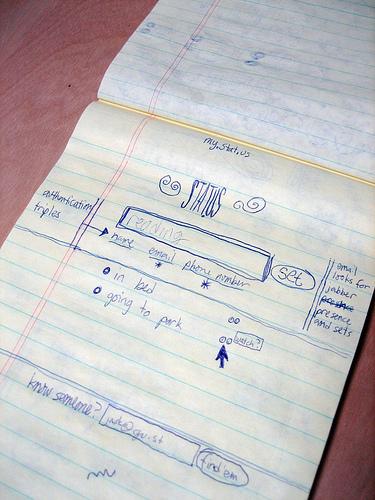 my.stat.us
STATUS
authentication
triples
reading
name email phone number
set
email
looks for
jabber
presence
and sets
in bed
going to park
watch?
know someone?
find 'em